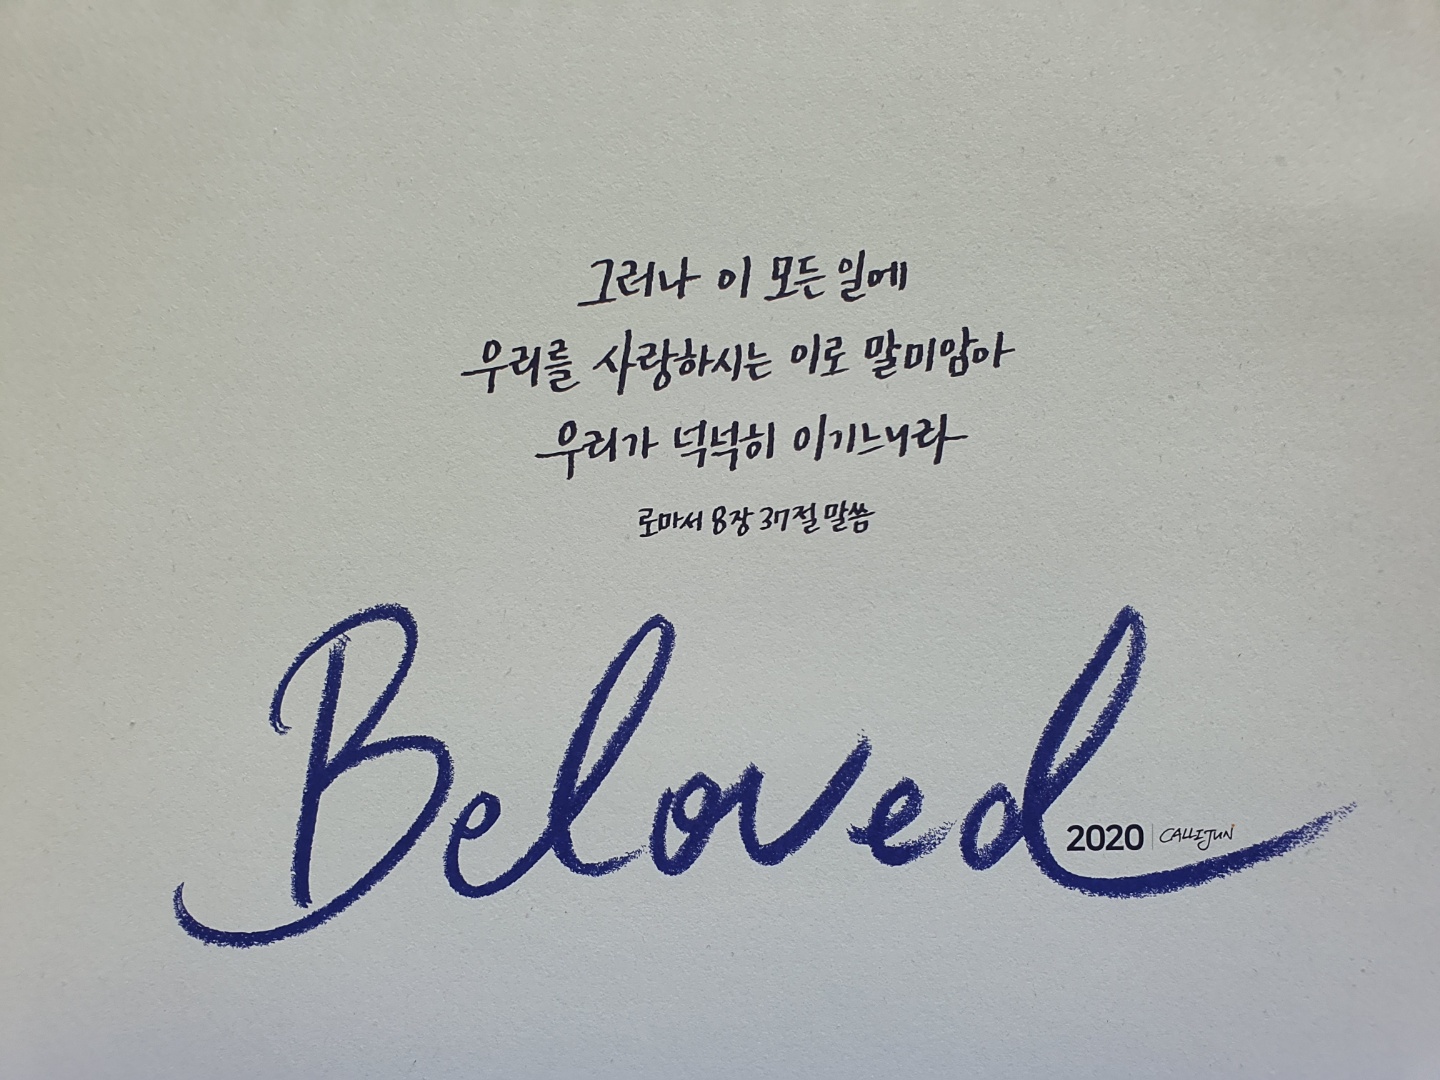 그러나 이 모든 일에
우리를 사랑하시는 이로 말미암아
우리가 넉넉히 이기느니라
로마서 8장 37절 말씀
Beloved
2020 | CALLIJUN